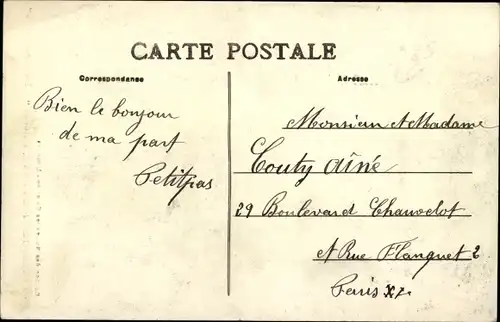 CARTE POSTALE
Correspondance
Bien le bonjour
de ma part
Petitpas
Adresse
Monsieur et Madame
Couty aîné
29 Boulevard Chauvelot
et Rue Flanquet 2
Paris